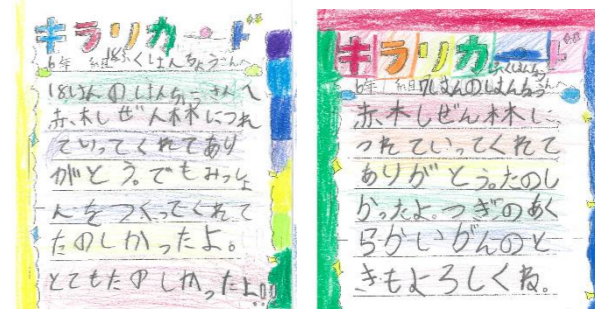 キラリカード
6年 組18ぱんふくはんちょうさんへ
18ぱんのはんちょーさんへ
赤木しぜん林につれ
ていってくれてあり
がとう。でもみっしょ
んをつくってくれて
たのしかったよ。
とてもたのしかったよ!!!
キラリカード
ふくはんちょう
6年 組7はんのはんちょう
赤木しぜん林に、
つれていってくれて
ありがとう。たのし
かったよ。つぎのあく
らがいがんのと
きもよろしくね。